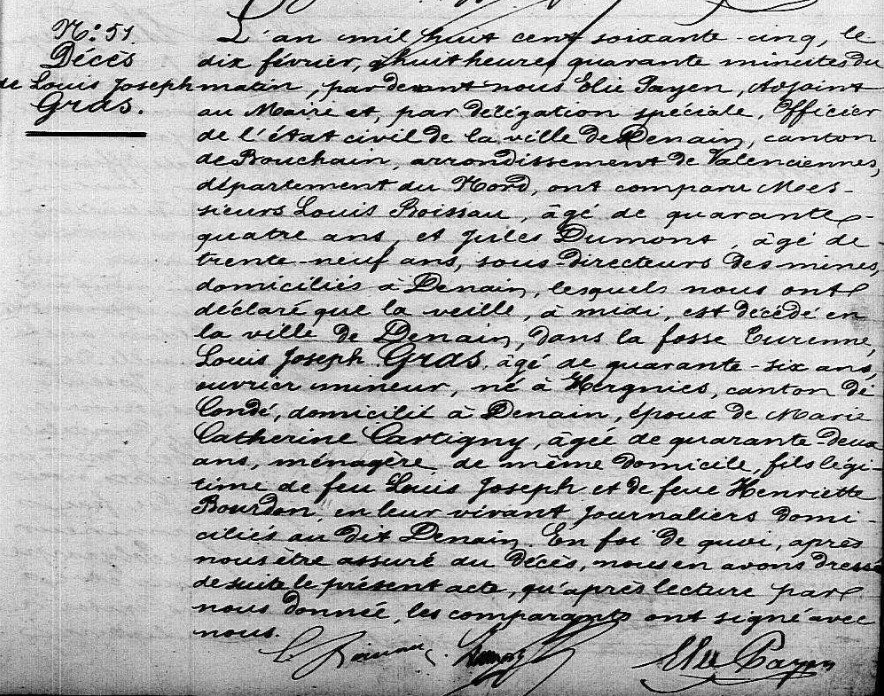 N.° 51
Décès
de Louis Joseph
Gras.
L'an mil huit cent soixante-cinq, le
dix février, à huit heures quarante minutes du
matin, pardevant nous Elie Payen, Adjoint
au Maire et, par délégation spéciale, Officier
de l'état civil de la ville de Denain, canton
de Bouchain, arrondissement de Valenciennes,
département du Nord, ont comparu Mes-
sieurs Louis Boissau, âgé de quarante-
quatre ans, et Jules Dumont, âgé de
trente-neuf ans, sous-directeurs des mines,
domiciliés à Denain, lesquels nous ont
déclaré que la veille, à midi, est décédé en
la ville de Denain, dans la fosse Turenne,
Louis Joseph Gras, âgé de quarante-six ans,
ouvrier mineur, né à Hergnies, canton de
Condé, domicilié à Denain, époux de Marie
Catherine Cartigny, âgée de quarante-deux
ans, ménagère, de même domicile, fils légi-
time de feu Louis Joseph et de feue Henriette
Bourdon, en leur vivant journaliers domi-
ciliés au dit Denain. En foi de quoi, après
nous être assuré du décès, nous en avons dressé
de suite le présent acte, qu'après lecture par
nous donnée, les comparants ont signé avec
nous.
Elie Payen